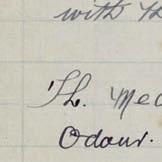 with th
Th. Med
Odour.